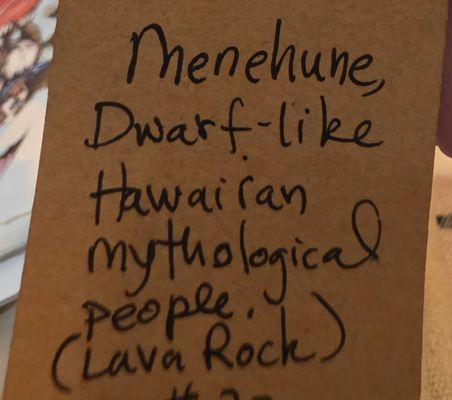 Menehune,
Dwarf-like
Hawaiian
mythological
people.
(Lava Rock)